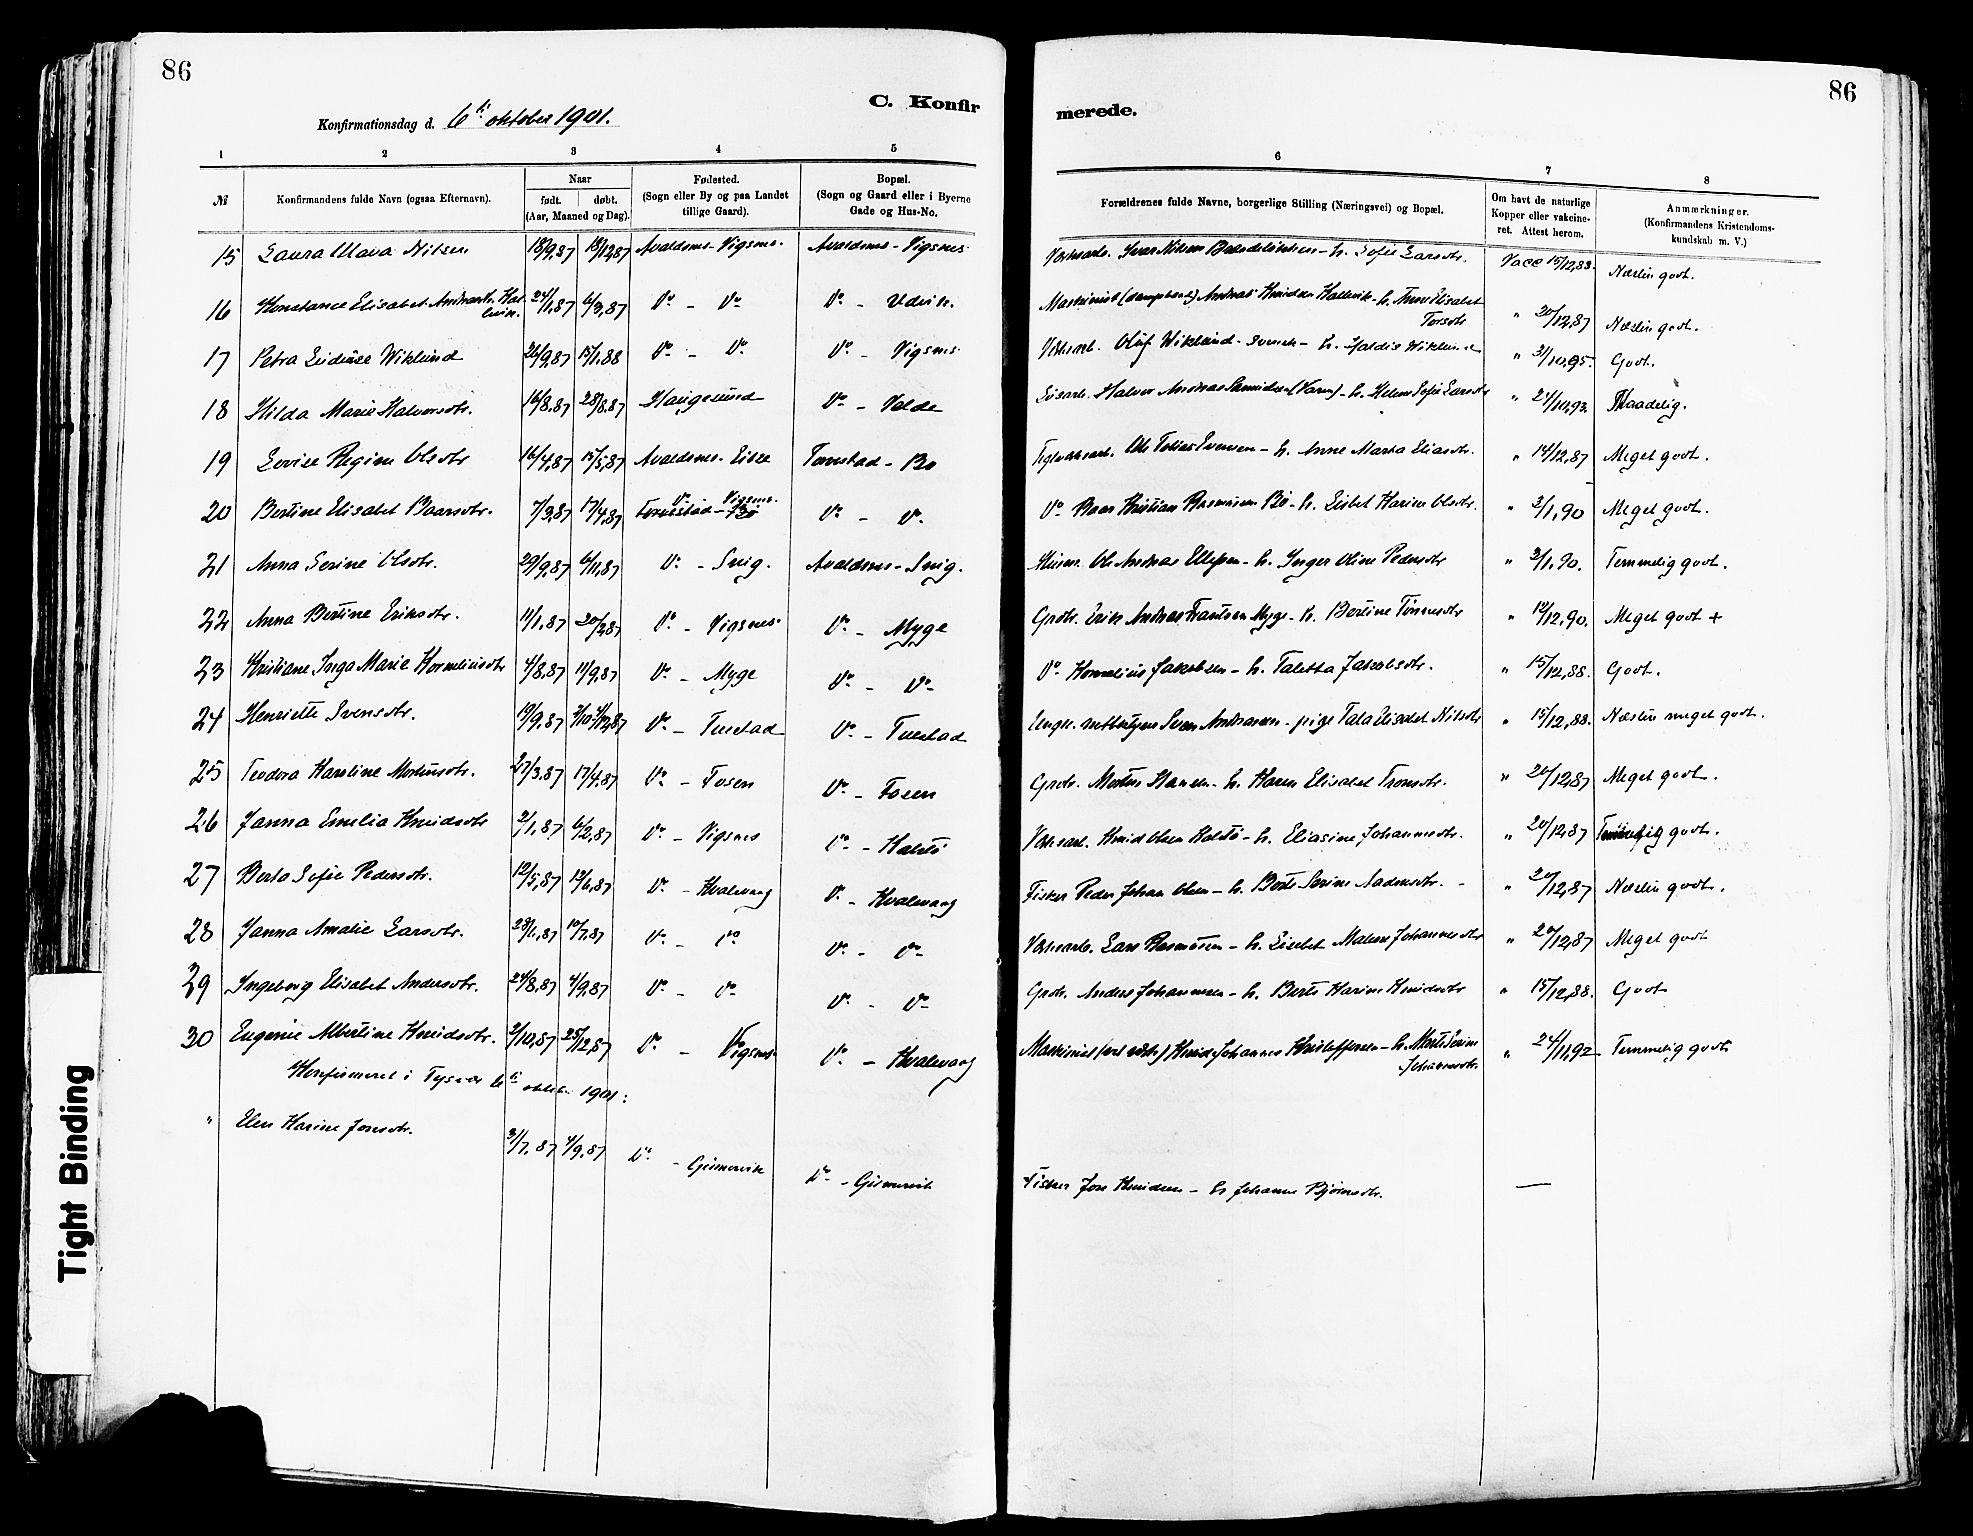 86
86
C. Konfir
merede.
Konfirmationsdag d. 6ti oktober 1901.
1 2 3 4 5 6 7 8
№ Konfirmandens fulde Navn (ogsaa Efternavn). Naar født. døbt. (Aar, Maaned og Dag). Fødested. (Sogn eller By og paa Landet tillige Gaard). Bopæl. (Sogn og Gaard eller i Byerne Gade og Hus-No. Forældrenes fulde Navne, borgerlige Stilling (Næringsvei) og Bopæl. Om havt de naturlige Kopper eller vakcineret. Attest herom. Anmærkninger. (Konfirmandens Kristendomskundskab m. V.)
15 Laura Maria Nilsen 18/9,87 18/12,87 Avaldsnes - Vigsnes. Avaldsnes - Vigsnes Verksarb. Ivar Nilsen - h. Sofie Larsdtr. Vacc 15/12,88. Næsten godt.
16 Konstance Elisabet Andreasdtr. 24/1,87 6/3,87 Do - Do Do - Udvik. Maskinist Andreas Knudsen Hallevik - h. Anne Elisabet Torsdtr " 20/12,87 Næsten godt.
17 Petra Wiklund 26/9,87 15/1,88 Do - Do Do - Vigsnes Verksarb. Oluf Wiklund - svensk - h. Wiklund " 31/10,95. Godt.
18 Hilda Marie Halvorsdtr. 16/8,87 28/8,87 Haugesund Do - Velde Løsarb. Halvor Andreas - h. Helene Sofie Larsdtr " 24/10,93. Maadelig.
19 Lovise Regine Olsdtr 16/4,87 15/5,87 Avaldsnes - Eikje Tornestad - Bø Teglverksarb. Ole Tobias Evensen - h. Anne Marta Eliasdtr. " 14/12,87 Meget godt.
20 Bertine Elisabet Baarsdtr. 7/3,87 17/4,87 Do Vigsnes Do - Do. Do Baar Kristian Rasmussen Bø - h. Lisbet Karine Olsdtr. " 3/1,90 Meget godt.
21 Anna Serine Olsdtr. 29/9,87 6/11,87 Do - Snig. Avaldsnes - Snig. Husm. Ole Andreas Ellefsen - h. Inger Oline Pedersdtr " 3/1,90. Temmelig godt.
22 Anna Bertine Eriksdtr. 11/1,87 20/2,87 Do - Vigsnes Do - Myge Grdbr. Erik Andreas Frantsen Myge - h. Bertine Tønnesdtr " 12/12,90. Meget godt +
23 Kristiane Inga Marie Korneliusdtr 4/8,87 11/9,87 Do - Myge Do - Do Do Kornelius Jakobsen - h. Taletta Jakobsdtr. " 15/12,88. Godt.
24 Henriette Svensdtr. 19/9,87 4/12,87 Do - Tuestad Do - Tuestad Ungk. Sven Andreasen - pige Tala Elisabet Nilsdtr " 15/12,88. Næsten meget godt.
25 Teodora Karoline Mortinsdtr. 27/3,87 17/4,87 Do - Fosen Do - Fosen Grdbr. Mortin Hansen - h. Karen Elisabet Tronsdtr. " 20/12,87 Meget godt.
26 Janna Emelia Knudsdtr 2/1,87 6/2,87 Do - Vigsnes Do - Kolstø Verksarb. Knud Olsen Kolstø - h. Eliasine Johannesdtr. " 20/12,87 Temmelig godt.
27 Berta Sofie Pedersdtr. 12/5,87 19/6,87 Do - Kvalevaag Do - Kvalevaag Fisker Peder Johan Olsen - h. Berte Serine Aadensdtr. " 20/12,87 Næsten godt.
28 Janna Amalie Larsdtr. 28/1,87 10/7,87 Do - Do Do - Do Verksarb. Lars Rasmussen - h. Lisebet Malene Johannesdtr " 20/12,87 Meget godt
29 Ingeborg Elisabet Andersdtr. 24/8,87 4/9,87 Do - Do Do - Do Grdbr. Anders Johannesen - h. Berte Karine Knudsdtr " 15/12,88. Godt
30 Eugenie Albertine Knudsdtr. 2/10,87 25/12,87 Do - Vigsnes Do - Kvalevaag Maskinist Knud Johannes Kristoffersen - h. Marte Serine Johannesdtr. " 24/11,92 Temmelig godt
Konfirmeret i Tysvær 6ti oktober 1901:
" Elen Karine Jonsdtr. 31/7,87 4/9,87 Do - Gismervik Do - Gismervik Fisker Jon Knudsen - h. Johanne Bjørnsdtr. —
Tight Binding